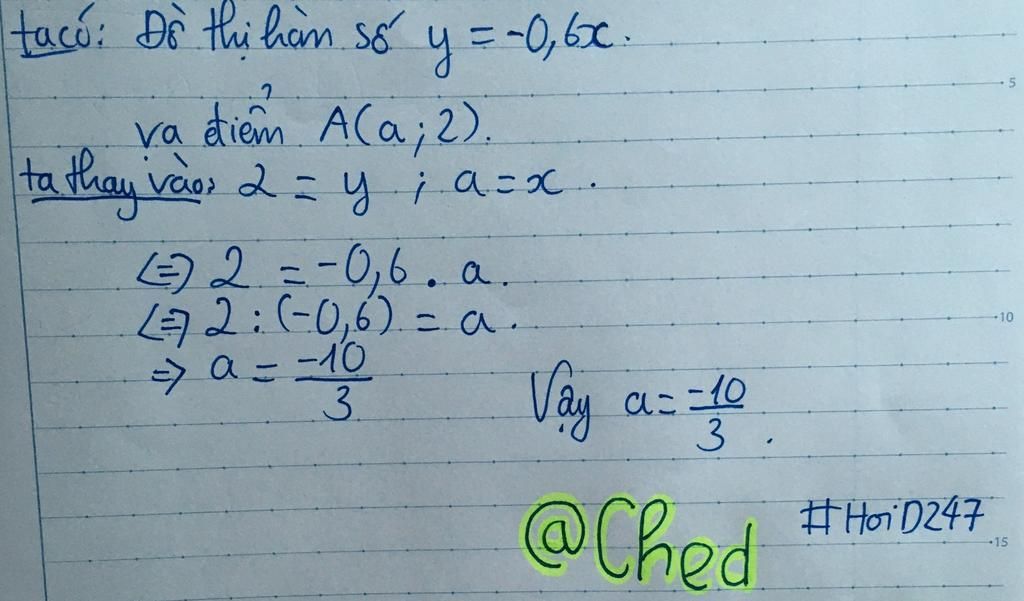 ta có: Đồ thị hàn số y = -0,6x.
5
va điểm A(a;2).
ta thay vào: 2 = y ; a = x.
<=> 2 = -0,6 . a.
<=> 2 : (-0,6) = a.
10
=> a = -10/3
Vậy a = -10/3.
@Ched
#HoiD247
15